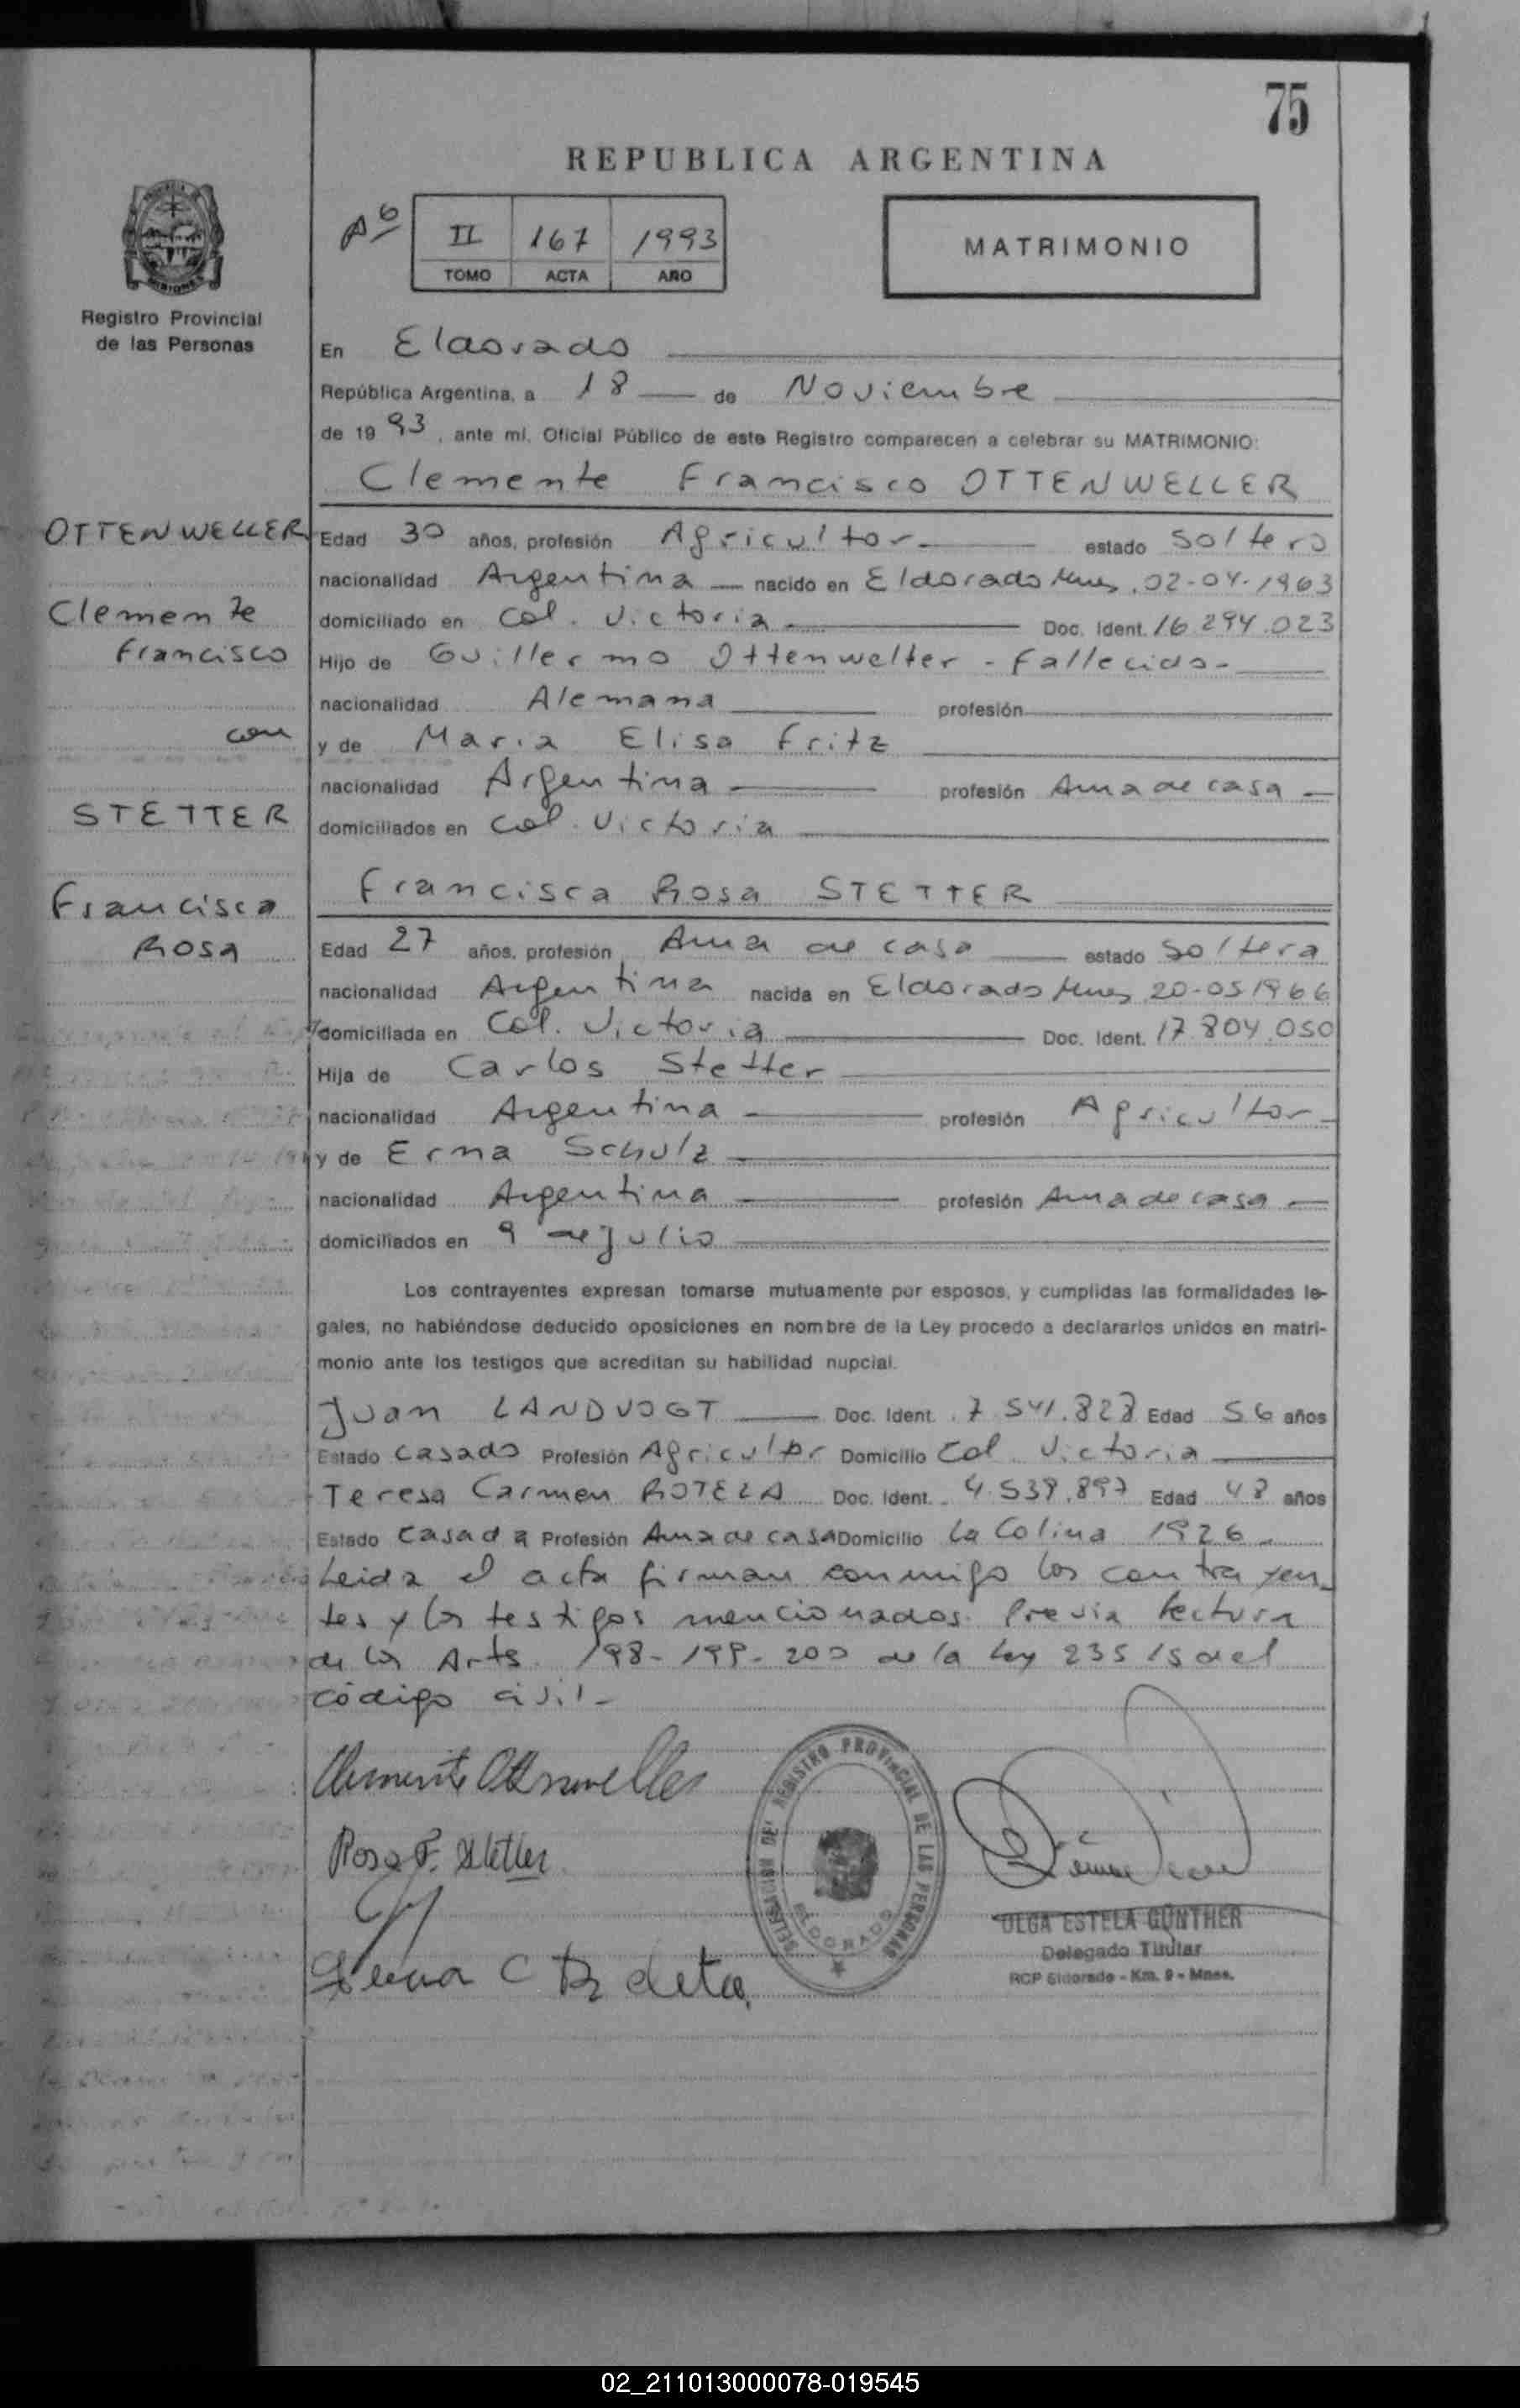 75
REPUBLICA ARGENTINA
II 167 1993
TOMO ACTA AÑO
MATRIMONIO
MISIONES
Registro Provincial
de las Personas
En Eldorado
República Argentina, a 18 de Noviembre
de 1993, ante mí, Oficial Público de este Registro comparecen a celebrar su MATRIMONIO:
Clemente Francisco OTTENWELLER
OTTENWELLER
Clemente
Francisco
con
STETTER
Francisca
Rosa
Edad 30 años, profesión Agricultor estado Soltero
nacionalidad Argentina nacido en Eldorado Mnes, 02-04-1963
domiciliado en Col. Victoria Doc. Ident. 16.294.023
Hijo de Guillermo Ottenweller - Fallecido-
nacionalidad Alemana profesión
y de Maria Elisa Fritz
nacionalidad Argentina profesión Ama de casa
domiciliados en Col. Victoria
Francisca Rosa STETTER
Edad 27 años, profesión Ama de casa estado Soltera
nacionalidad Argentina nacida en Eldorado Mnes 20-05 1966
domiciliada en Col. Victoria Doc. Ident. 17.804.050
Hija de Carlos Stetter
nacionalidad Argentina profesión Agricultor
y de Erna Schulz
nacionalidad Argentina profesión Ama de casa
domiciliados en 9 de julio
Los contrayentes expresan tomarse mutuamente por esposos, y cumplidas las formalidades le-
gales, no habiéndose deducido oposiciones en nombre de la Ley procedo a declararlos unidos en matri-
monio ante los testigos que acreditan su habilidad nupcial.
Juan LANDVOGT Doc. Ident. 7.541.828 Edad 56 años
Estado Casado Profesión Agricultor Domicilio Col Victoria
Teresa Carmen ROTELA Doc. Ident. 4.539.897 Edad 48 años
Estado Casada Profesión Ama de casa Domicilio La Colina 1926
Leida el acta firman conmigo los contrayen-
tes y los testigos mencionados. Previa lectura
de los Arts. 198-199-200 de la Ley 23515 del
código civil-
Clemente Ottenweller
Rosa F. Stetter
DELEGACION DEL REGISTRO PROVINCIAL DE LAS PERSONAS
ELDORADO
OLGA ESTELA GÜNTHER
Delegado Titular
RCP Eldorado - Km. 9 - Mnes.
02_211013000078-019545